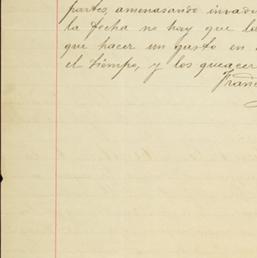 partes, amenasando invadi
la fecha no hay que la
que hacer un gasto en
el tiempo, y los queacer
Fran